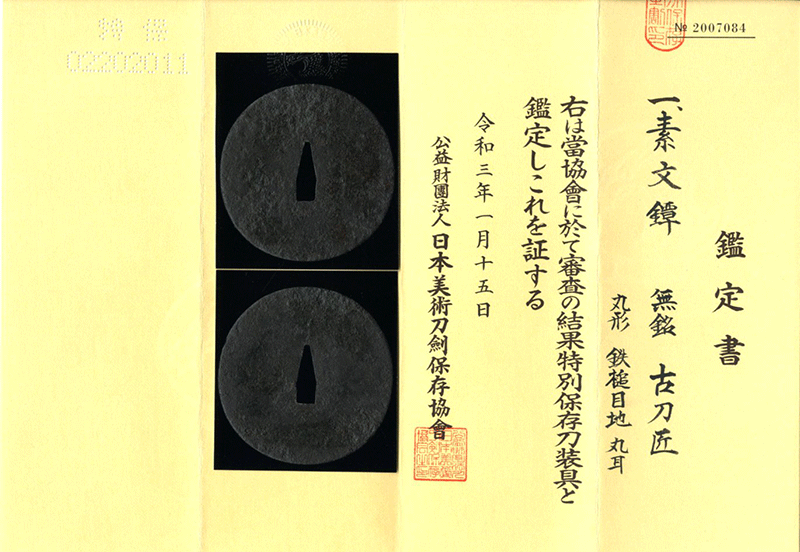 № 2007084
鑑定書
一、素文鐔 無銘 古刀匠
丸形 鉄槌目地 丸耳
右は當協會に於て審査の結果特別保存刀装具と
鑑定しこれを証する
令和三年一月十五日
公益財團法人 日本美術刀劍保存協會
特保
02202011